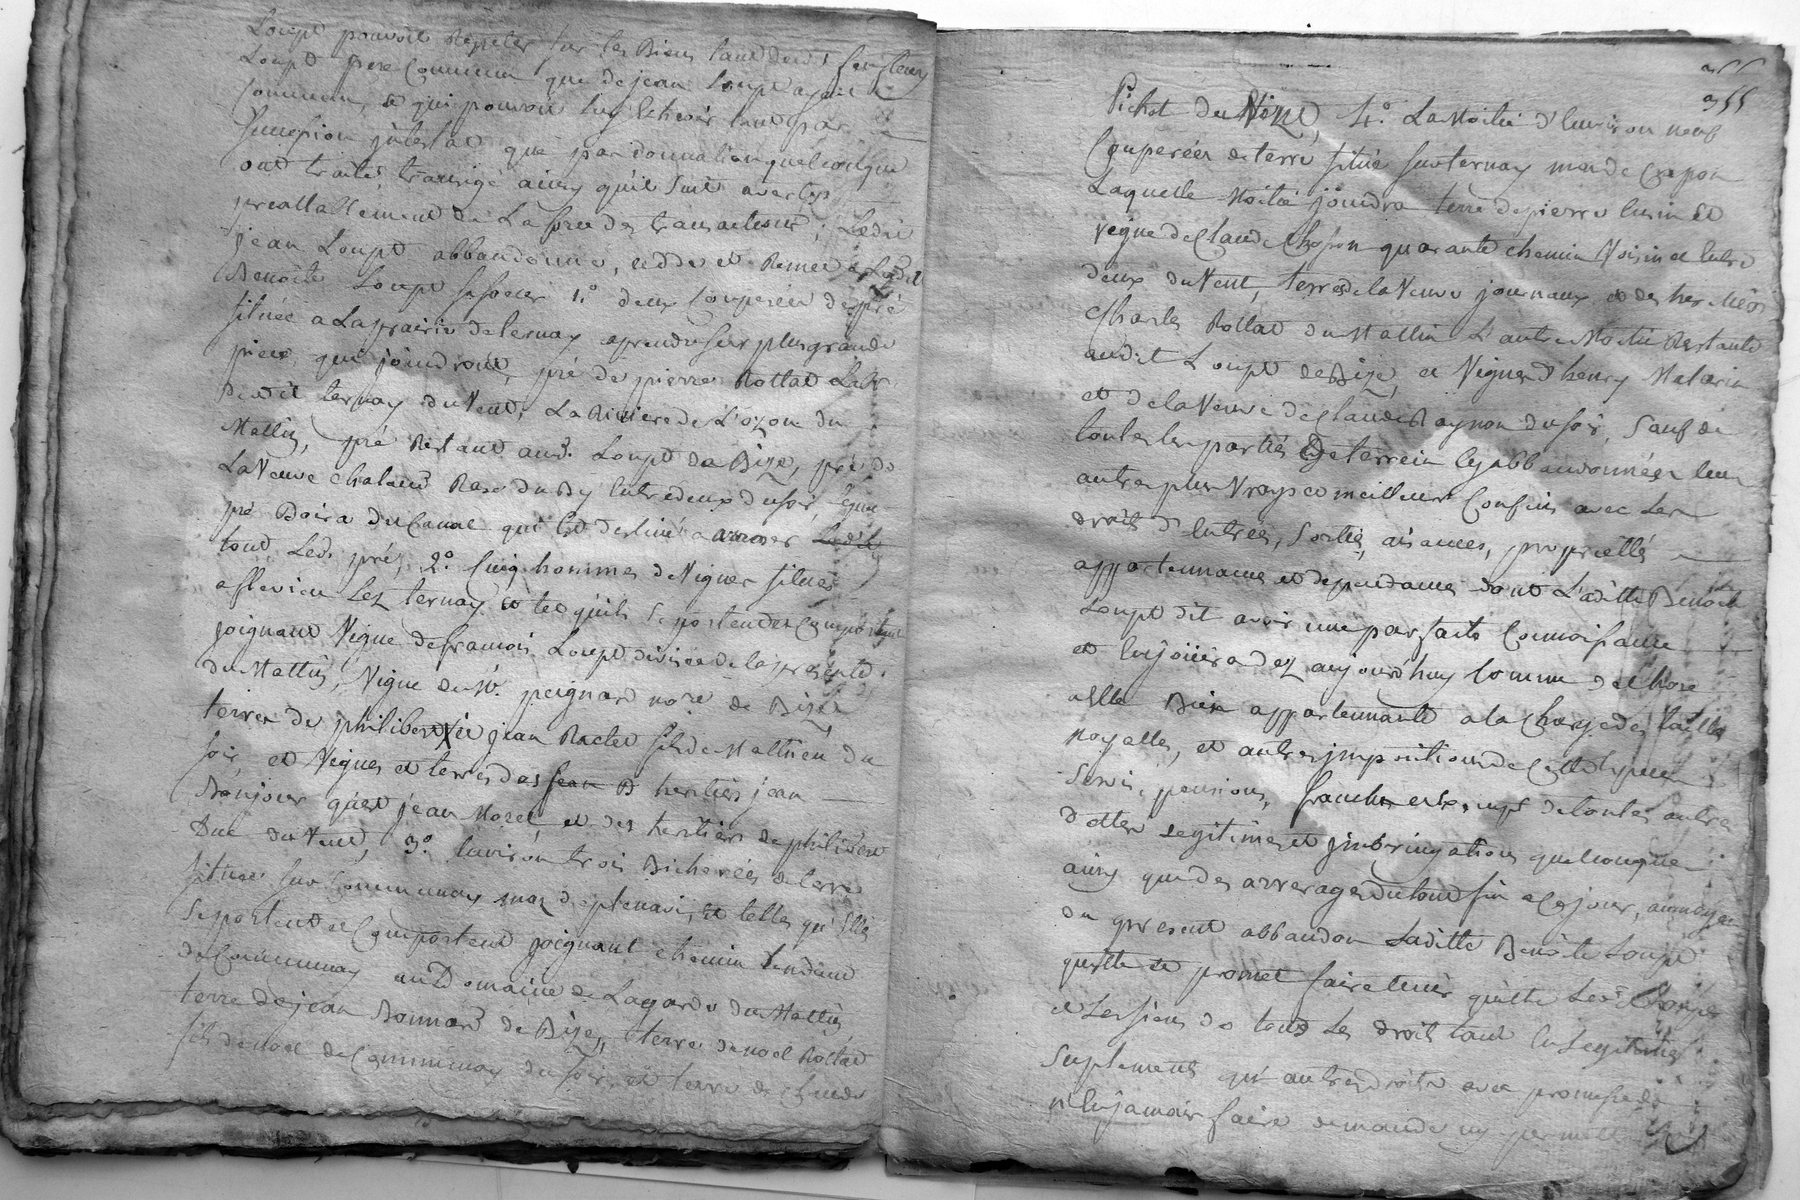 Loupt pouvoit Repeter sur les Biens tant dudt
Loupt pere Commun que de jean Loupt ayeul
Commun, et qui pouvoit luy Echeoir tant par
sucession jntestat que par donnation quelconque
ont traité, transigé ainsy qu'il suit avertis
prealablement de La force des transactions; Ledit
jean Loupt abbandonne, cedde et Remet à Ladite
Benoite Loupt sa soeur 1.° deux Couperées de pré
située a La prairie de ternay a prendre sur plus grande
piece qui joindront, pré de pierre Rollat
dudit ternay du Vent, La Riviere de L'ozon du
Mattin, pré Restant aud. Loupt de Bize, pré de
La Veuve chalant Rase du By Entredeux du soir,
pré Boira du Canal qui est destiné a arroser
tout Led. pré, 2.° Cinq hommes de Vignes situés
a flevieu Lez ternay et tel qu'ils se portent et Comportent
joignant Vigne de francois Loupt divisée de la presente
du Mattin, Vigne du Sr. peignard no.re de Bize
terres de philibert et jean Ractet fils de Mathieu du
soir, et Vignes et terres des heritiers jean
Bonjour quet jean Morel et des heritiers de philibert
Duc du Vent, 3.° Environ trois Bicherées de terre
situées sur Communay mas de plenavi, et telles qu'Elles
se portent et Comportent joignant chemin tendant
de Communay au Domaine de Lagarde du Mattin,
terre de jean Bonnard de Bize, terre de noel Rollat
fils de noel de Communay du soir, et terre de
355
355
Pichot du Nord, 4.° La Moitié d'Environ neuf
Couperées de terre située sur ternay mas de Crapon
Laquelle Moitié joindra terre de pierre et
Vigne de Claude Chosson quarante chemin Voisin et Entre
deux du Vent, terres de la Veuve journaux et des heritiers
Charles Rollat du Mattin L'autre Moitié Restante
audit Loupt de Bize, et Vignes d'henry Matarin
et de la Veuve de Claude Raynon du soir, sauf de
toutes les parties de terrein cy abbandonnées leur
autres plus Vrays et meilleurs Confins avec Les
droits d'Entrées, sorties, aisances, proprietés
appartenances et dependances dont Laditte Benoite
Loupt dit avoir une parfaite Connoissance
et En joüira dez aujourd'huy Comme de chose
a Elle Bien appartennante a la charge des tailles
Royalles, et autres jmpositions de Cette Espece
Servis, pensions, franches et Exempt de toutes autres
dettes Legitimes et jmbringations quelconque
ainsy que des arrerages du tout sin a Ce jour, au moyen
du present abbandon Laditte Benoite Loupt
quitte et promet faire tenir quitte
et Les siens de tous Les droits tant En Legitimes
suplements qu'autres droits avec promesse de
n'En jamais faire demande ny permettre